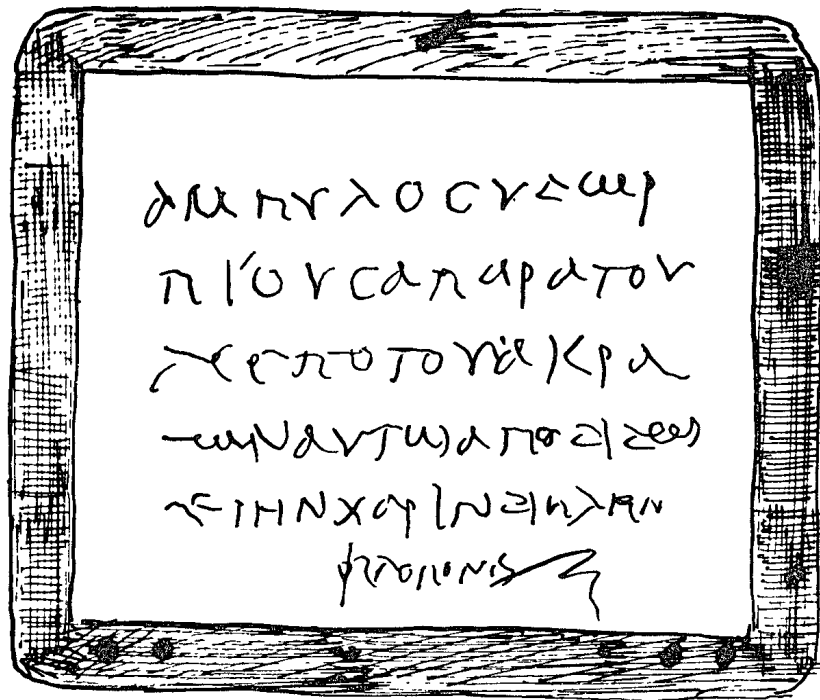 αμπυλοσυδωρ
πιουσαπαρατου
δεσποτουακρα
τωναυτωαποδιδω
σιτηνχαρινδιπλην
φιλοπονει